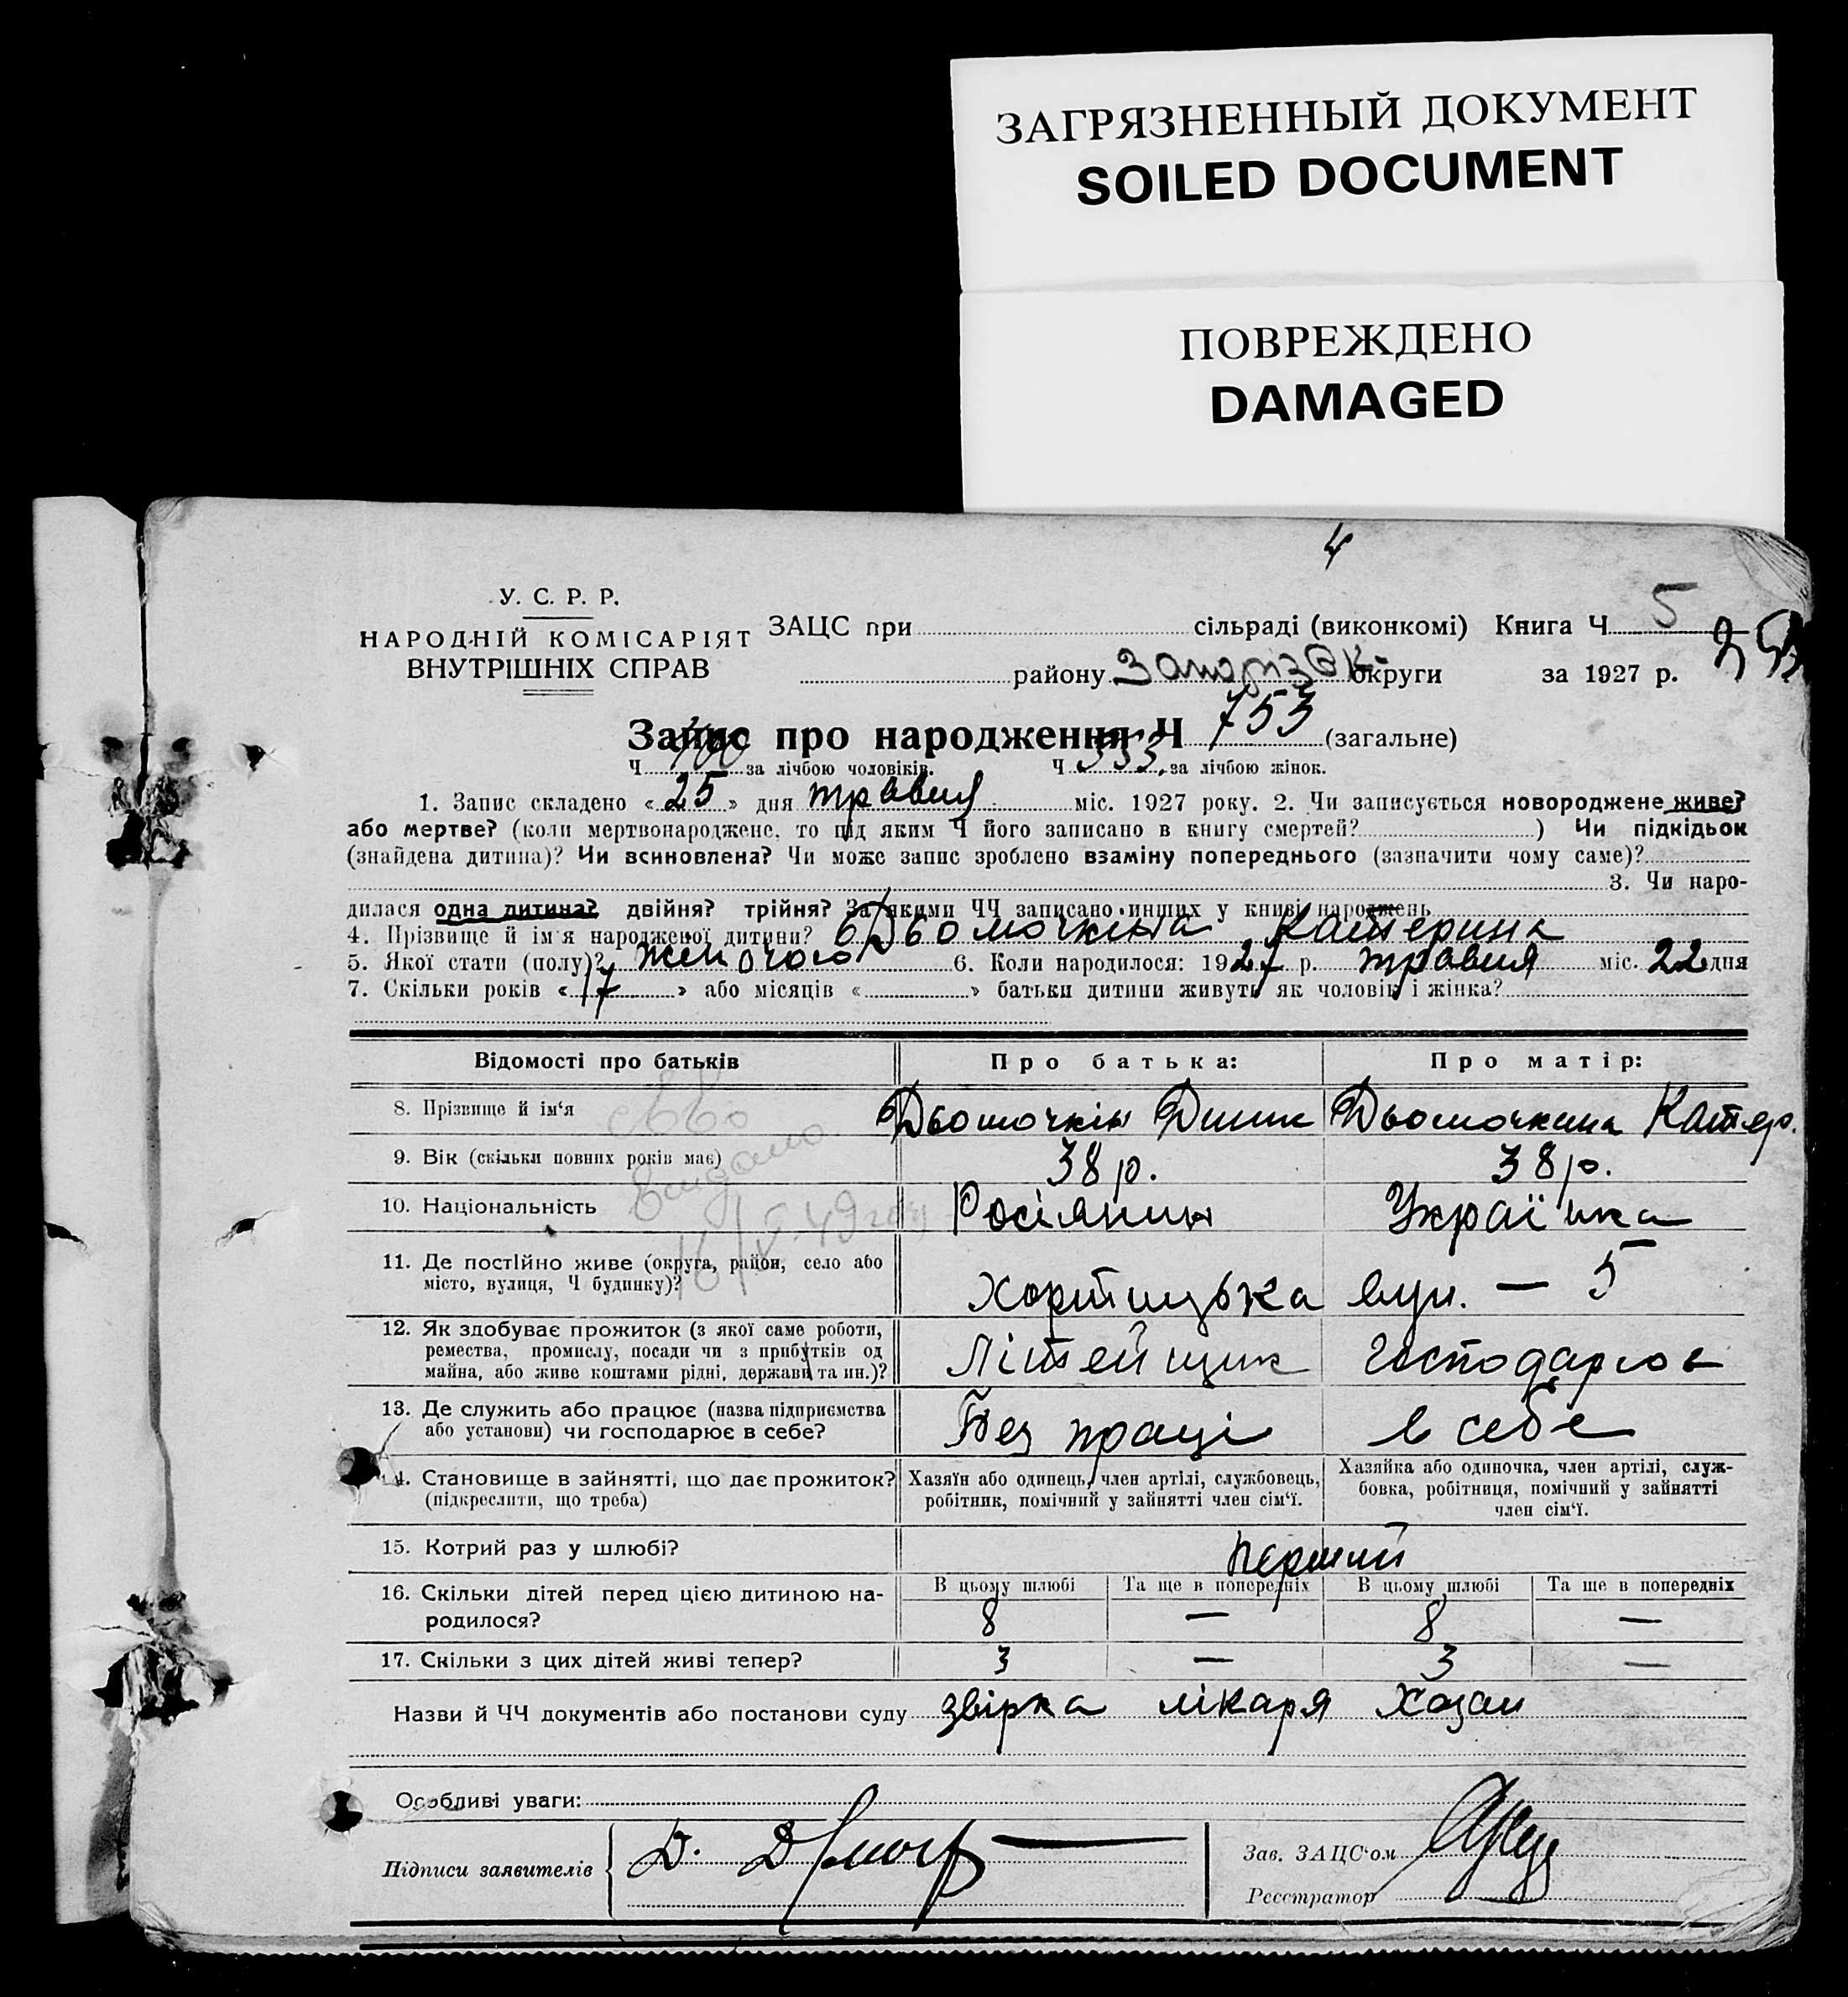 ЗАГРЯЗНЕННЫЙ ДОКУМЕНТ
SOILED DOCUMENT
ПОВРЕЖДЕНО
DAMAGED
4
У. С. Р. Р.
НАРОДНІЙ КОМІСАРІЯТ
ВНУТРІШНІХ СПРАВ
ЗАЦС при сільраді (виконкомі) Книга Ч 5
району округи за 1927 р.
Запис про народження Ч 753 (загальне)
Ч 400 за лічбою чоловіків. Ч 353 за лічбою жінок.
1. Запис складено « 25 » дня травня міс. 1927 року. 2. Чи записується новороджене живе?
або мертве? (коли мертвонароджене, то під яким Ч його записано в книгу смертей? ) Чи підкідьок
(знайдена дитина)? Чи всиновлена? Чи може запис зроблено взаміну попереднього (зазначити чому саме)?
3. Чи наро-
дилася одна дитина? двійня? трійня? За якими ЧЧ записано инших у книзі народжень
4. Прізвище й ім'я народженої дитини? Дьомочкіна Катерина
5. Якої стати (полу)? жіночого 6. Коли народилося: 1927 р. травня міс. 22 дня
7. Скільки років « 17 » або місяців « » батьки дитини живуть як чоловік і жінка?
Відомості про батьків Про батька: Про матір:
8. Прізвище й ім'я Дьомочкін Дьомочкина Катер.
9. Вік (скільки повних років має) 38 р. 38 р.
10. Національність Росіянин Українка
11. Де постійно живе (округа, район, село або
місто, вулиця, Ч будинку)? Хортицька вул. — 5
12. Як здобуває прожиток (з якої саме роботи,
ремества, промислу, посади чи з прибутків од
майна, або живе коштами рідні, держави та ин.)? Літейщик господарює
13. Де служить або працює (назва підприємства
або установи) чи господарює в себе? Без праці в себе
14. Становище в зайнятті, що дає прожиток?
(підкреслити, що треба)
Хазяїн або одинець, член артілі, службовець,
робітник, помічний у зайнятті член сім'ї.
Хазяйка або одиночка, член артілі, служ-
бовка, робітниця, помічний у зайнятті
член сім'ї.
15. Котрий раз у шлюбі? перший
16. Скільки дітей перед цією дитиною на-
родилося?
В цьому шлюбі Та ще в попередніх В цьому шлюбі Та ще в попередніх
8 — 8 —
17. Скільки з цих дітей живі тепер? 3 — 3 —
Назви й ЧЧ документів або постанови суду звірка лікаря
Особливі уваги:
Підписи заявителів Д.
Зав. ЗАЦС'ом
Реєстратор